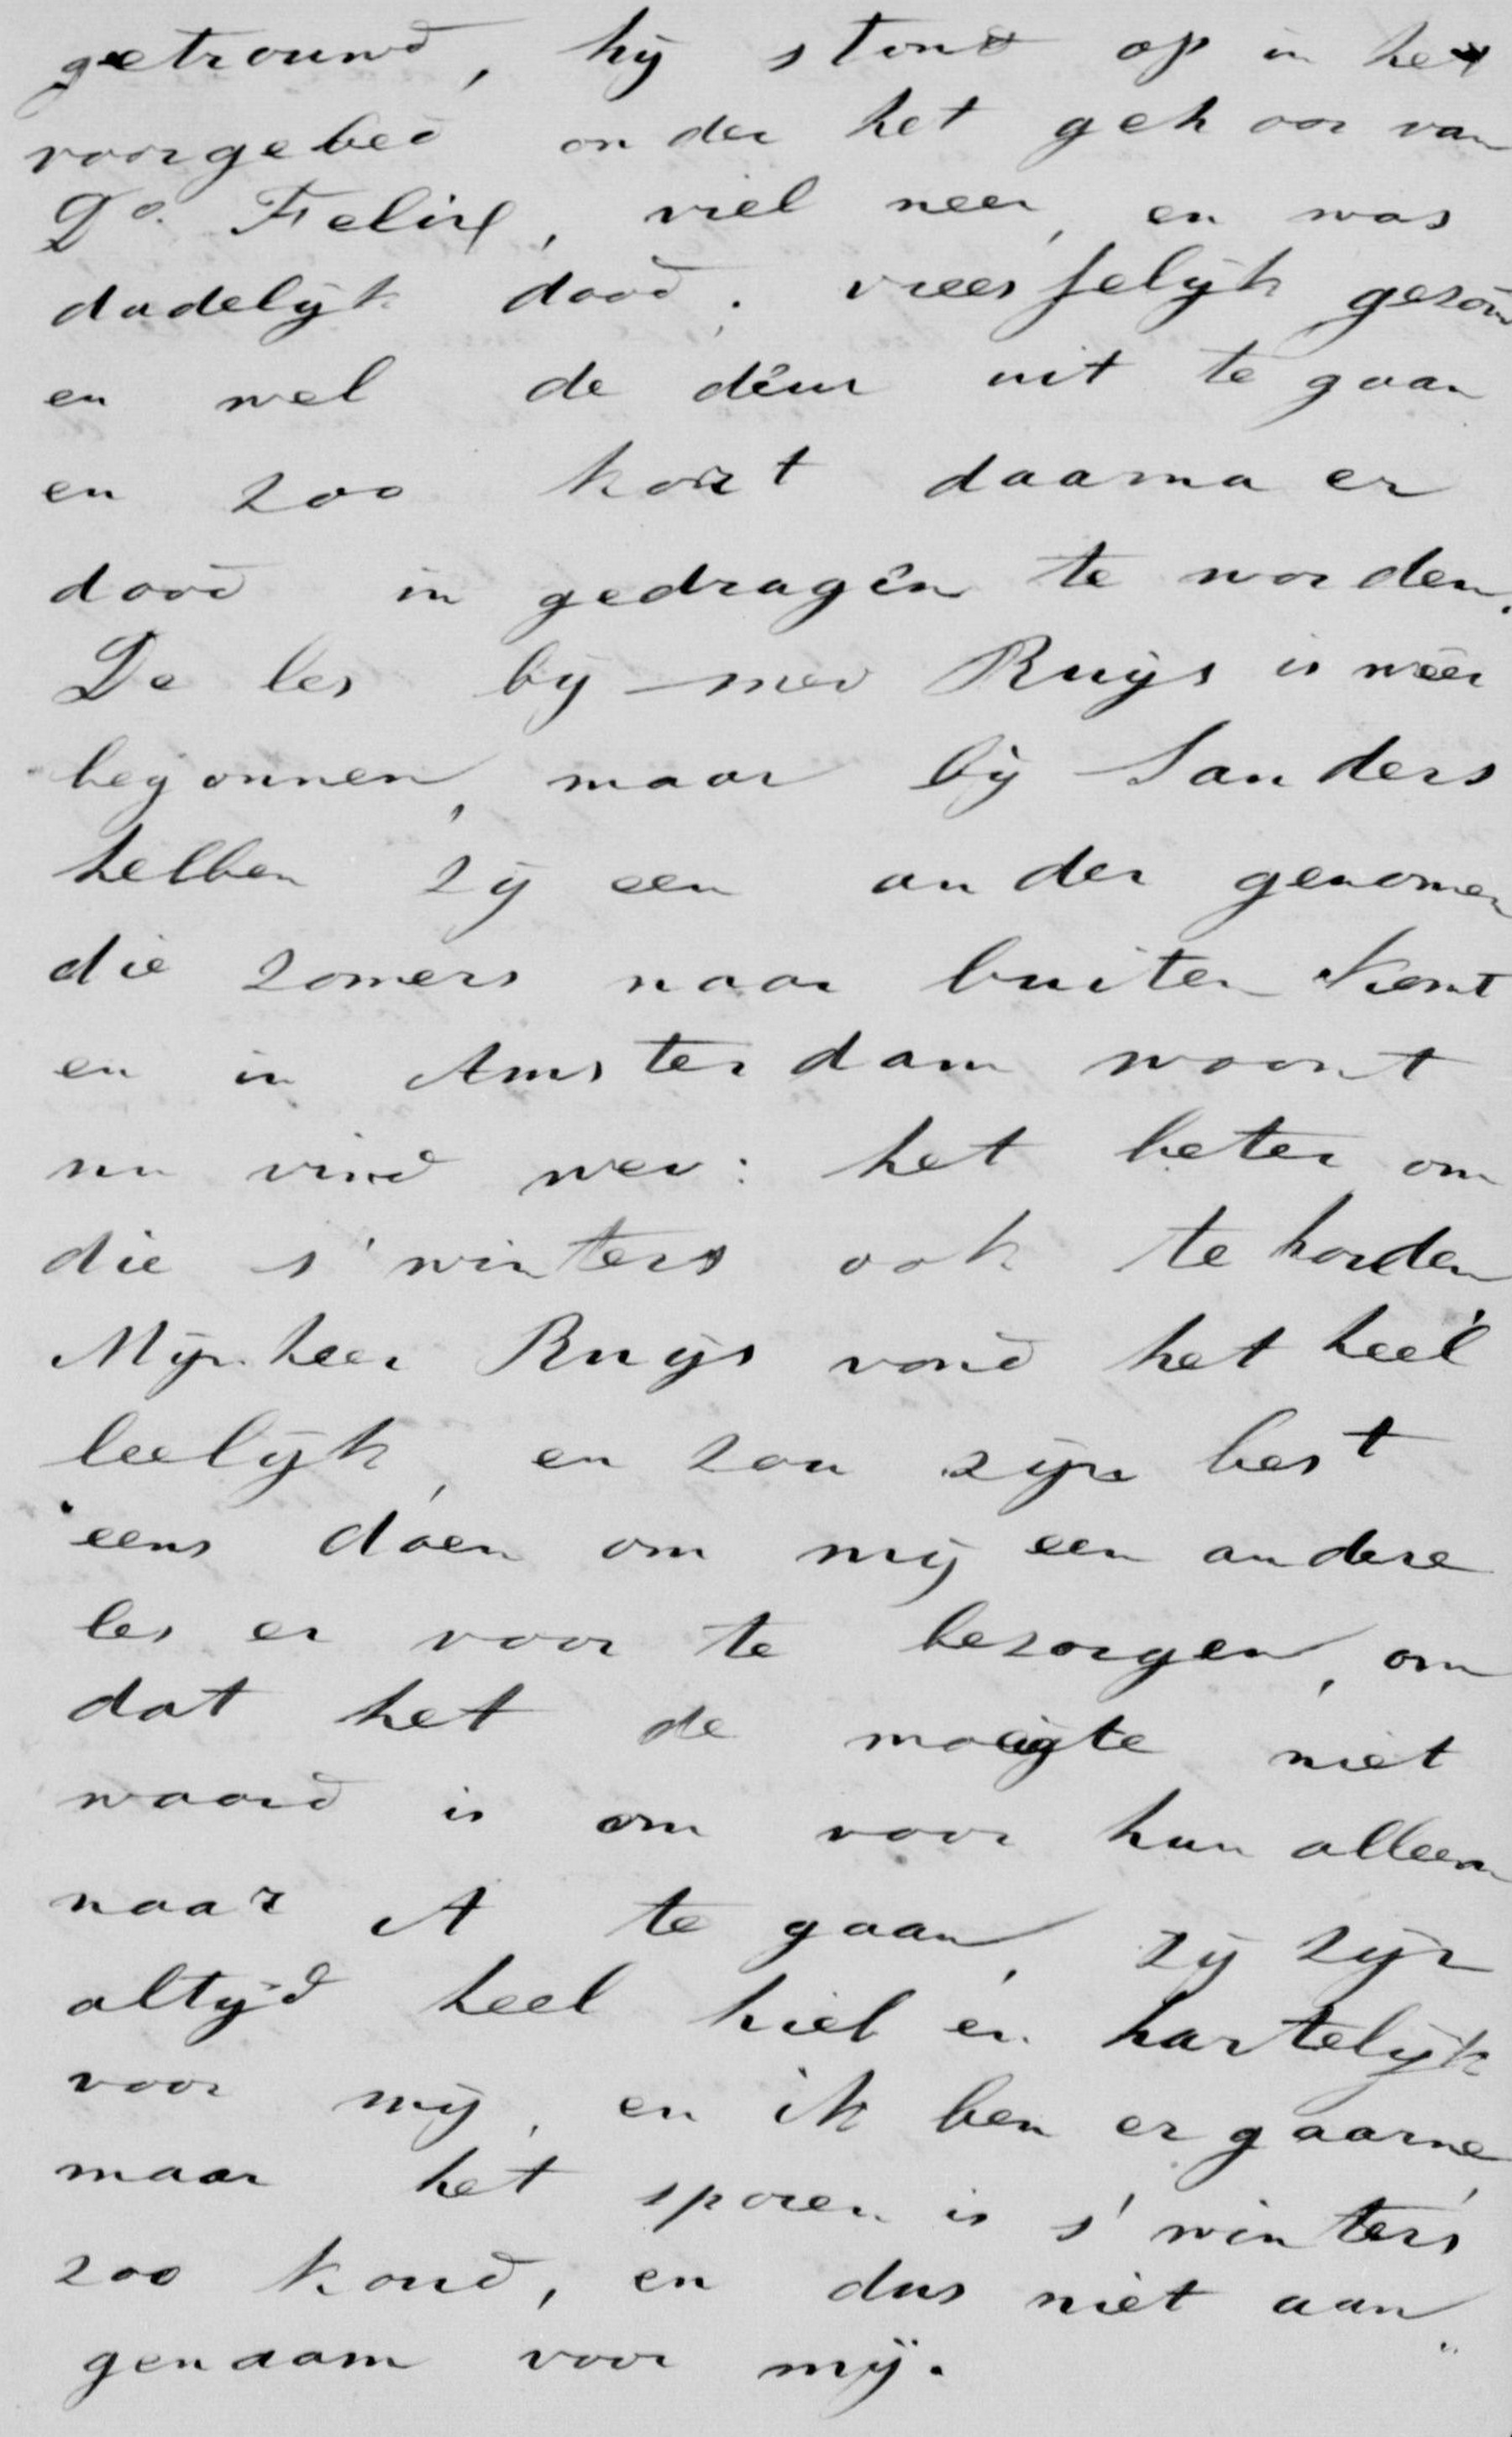 getrouwd, hij stond op in het
voorgebed onder het gehoor van
Do. Felix, viel neer, en was
dadelijk dood. vreesselijk gezond
en wel de deur uit te gaan
en zoo kort daarna er
dood in gedragen te worden.
De les bij mev Ruijs is weer
begonnen, maar bij Sanders
hebben zij een ander genomen
die zomers naar buiten komt
en in Amsterdam woont
nu vind mev: het beter om
die s'winters ook te houden
Mijnheer Ruijs vond het heel
leelijk, en zou zijn best
eens doen om mij een andere
les er voor te bezorgen, om
dat het de moeigte niet
waard is om voor hun alleen
naar A te gaan, zij zijn
altijd heel hiel en hartelijk
voor mij, en ik ben er gaarne,
maar het sporen is s'winters
zoo koud, en dus niet aan"
genaam voor mij.